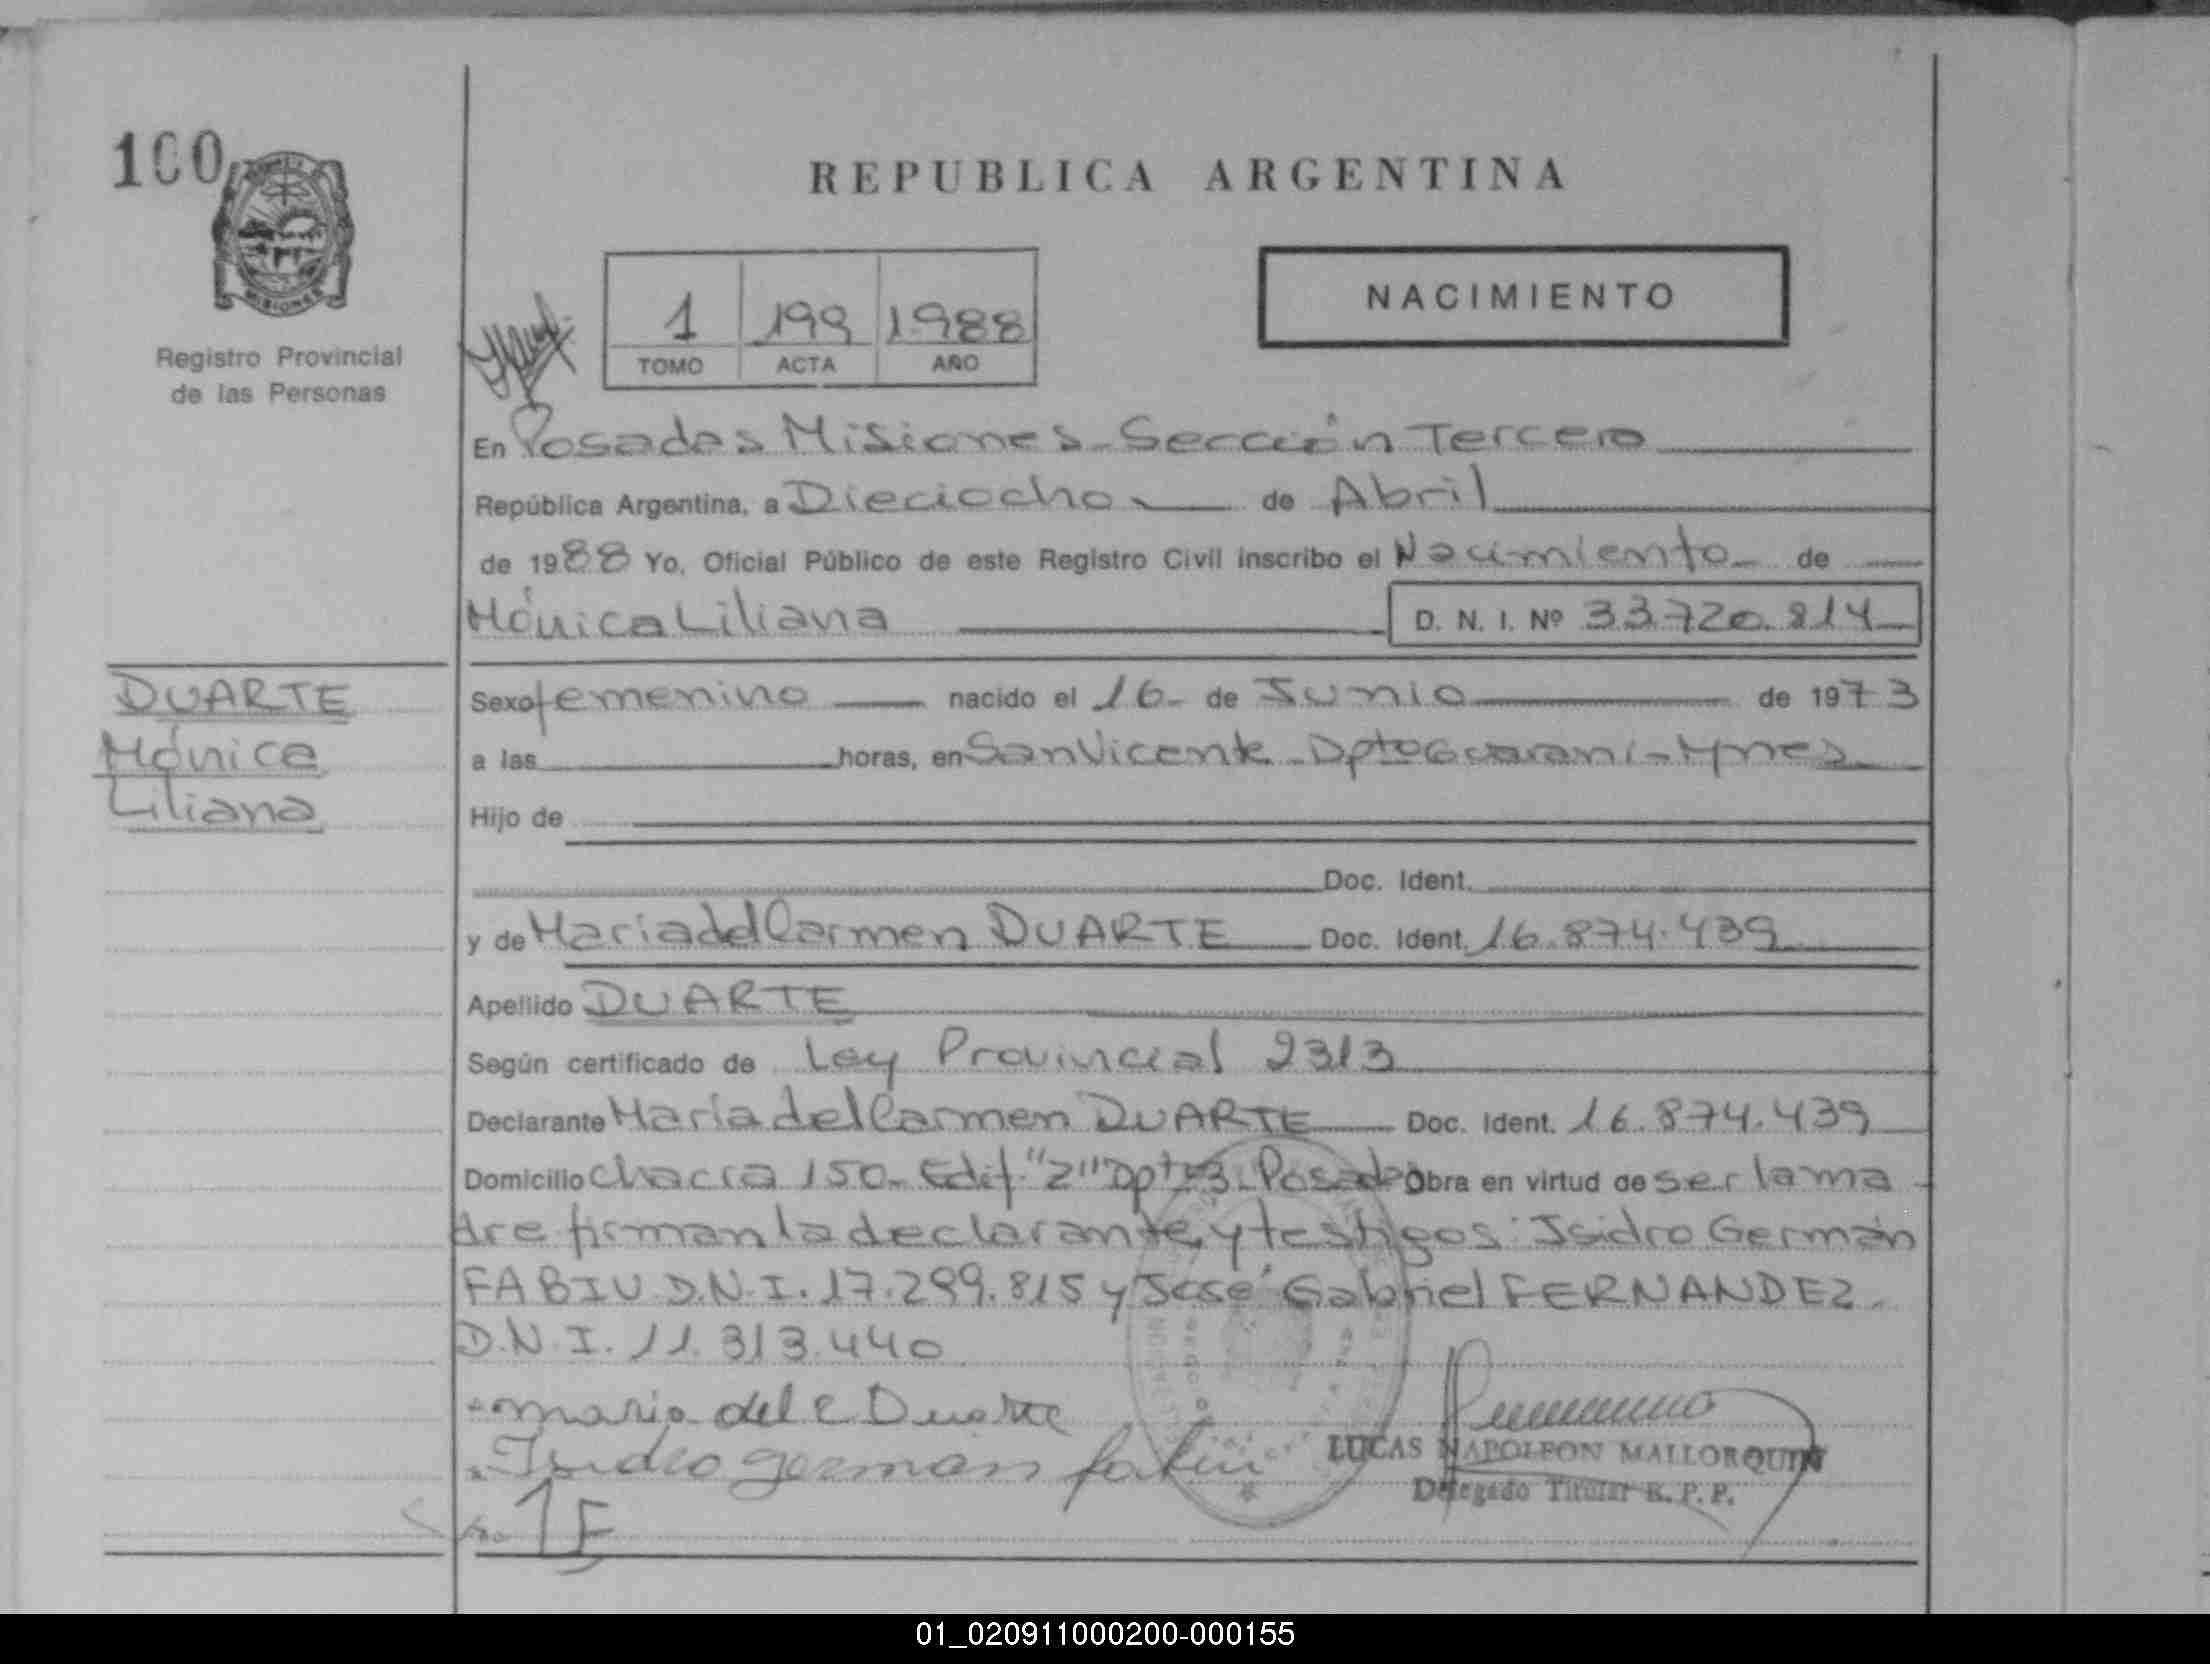 100
MISIONES
Registro Provincial
de las Personas
REPUBLICA ARGENTINA
1 199 1988
TOMO ACTA AÑO
NACIMIENTO
En Posadas Misiones - Sección Tercera
República Argentina, a Dieciocho de Abril
de 1988 Yo, Oficial Público de este Registro Civil inscribo el Nacimiento de
Mónica Liliana D. N. I. Nº 33.720.814
DUARTE
Mónica
Liliana
Sexo femenino nacido el 16 - de Junio de 1973
a las horas, en San Vicente - Dpto Guaraní - Mnes
Hijo de
Doc. Ident.
y de María del Carmen DUARTE Doc. Ident. 16.874.439
Apellido DUARTE
Según certificado de Ley Provincial 2313
Declarante María del Carmen DUARTE Doc. Ident. 16.874.439
Domicilio chacra 150 - Edif. "2" Dpto 3 - Posadas Obra en virtud de ser la ma
dre firman la declarante y testigos: Isidro Germán
FABIU D.N.I. 17.299.815 y José Gabriel FERNANDEZ.
D.N.I. 11.313.440
maria del C Duarte
Isidro german fabiu
LUCAS NAPOLEON MALLORQUIN
Delegado Titular R. P. P.
01_020911000200-000155